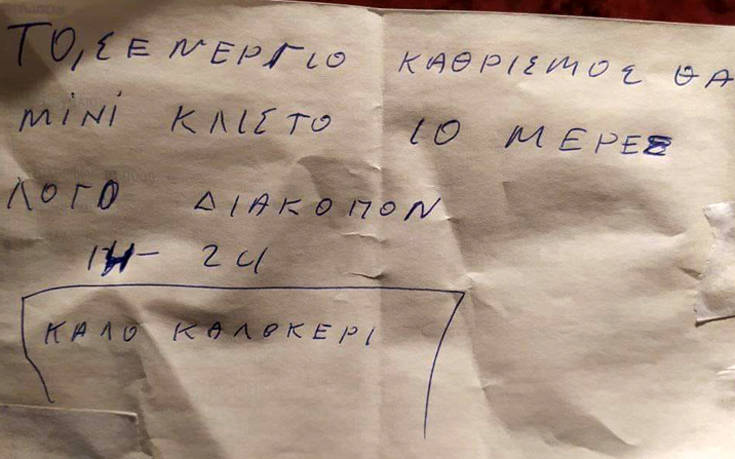 ΤΟ, ΣΕΝΕΡΓΙΟ ΚΑΘΡΙΣΜΟΣ ΘΑ
ΜΙΝΙ ΚΛΙΣΤΟ 10 ΜΕΡΕΣ
ΛΟΓΟ ΔΙΑΚΟΠΟΝ
14-24
ΚΑΛΟ ΚΑΛΟΚΕΡΙ